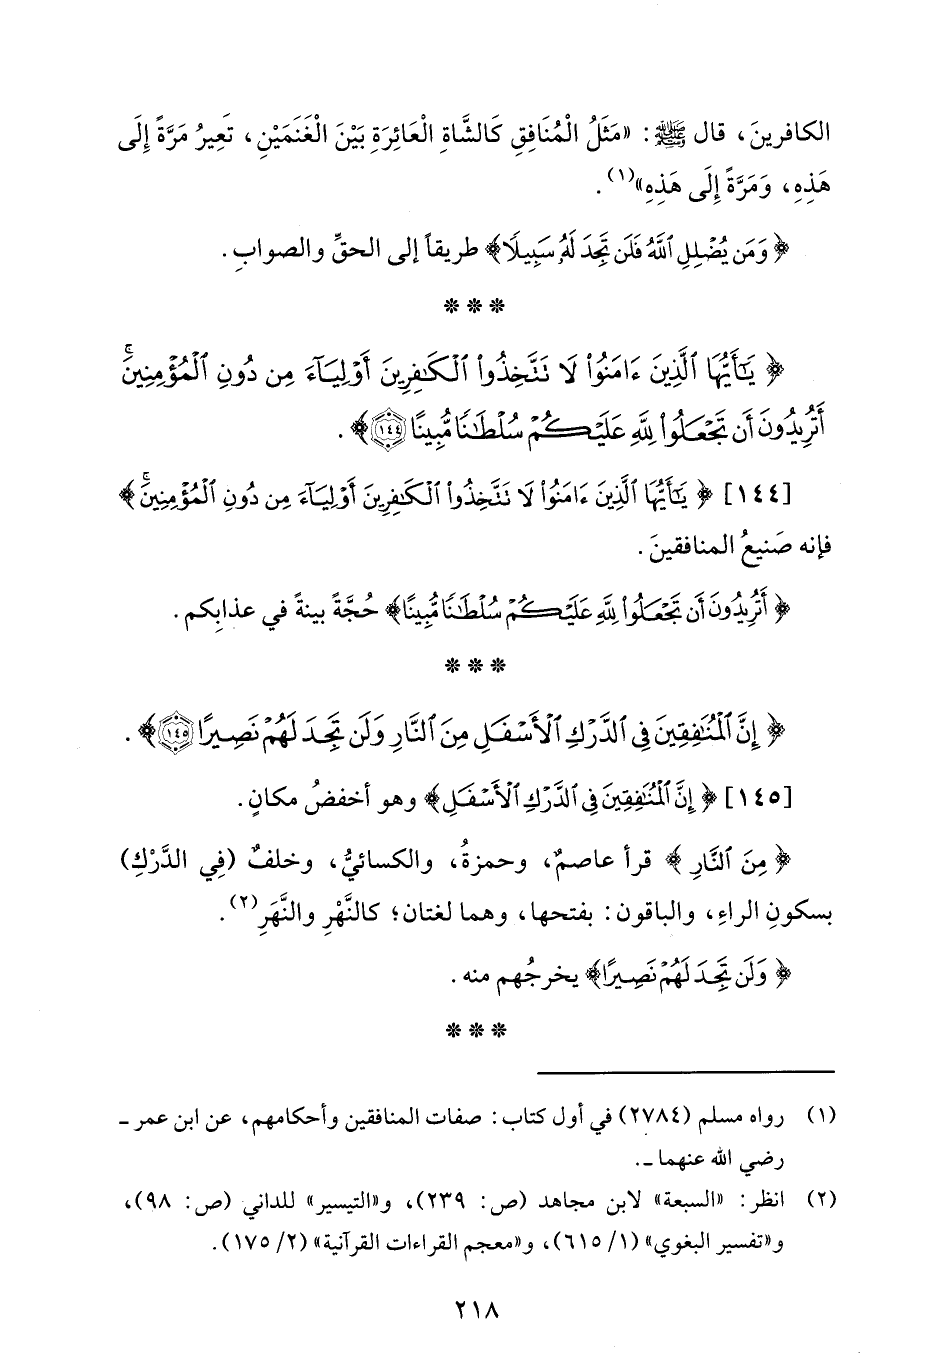 الكافرينَ، قال ﷺ: «مَثَلُ الْمُنَافِقِ كَالشَّاةِ الْعَائِرَةِ بَيْنَ الْغَنَمَيْنِ، تَعِيرُ مَرَّةً إِلَى
هَذِهِ، وَمَرَّةً إِلَى هَذِهِ»(١).
﴿وَمَن يُضْلِلِ ٱللَّهُ فَلَن تَجِدَ لَهُۥ سَبِيلًا﴾ طريقاً إلى الحقِّ والصوابِ.
***
﴿يَٰٓأَيُّهَا ٱلَّذِينَ ءَامَنُوا۟ لَا تَتَّخِذُوا۟ ٱلْكَٰفِرِينَ أَوْلِيَآءَ مِن دُونِ ٱلْمُؤْمِنِينَ ۚ
أَتُرِيدُونَ أَن تَجْعَلُوا۟ لِلَّهِ عَلَيْكُمْ سُلْطَٰنًا مُّبِينًا ١٤٤﴾.
[١٤٤] ﴿يَٰٓأَيُّهَا ٱلَّذِينَ ءَامَنُوا۟ لَا تَتَّخِذُوا۟ ٱلْكَٰفِرِينَ أَوْلِيَآءَ مِن دُونِ ٱلْمُؤْمِنِينَ ۚ﴾
فإنه صَنيعُ المنافقينَ.
﴿أَتُرِيدُونَ أَن تَجْعَلُوا۟ لِلَّهِ عَلَيْكُمْ سُلْطَٰنًا مُّبِينًا﴾ حُجَّةً بينةً في عذابِكم.
***
﴿إِنَّ ٱلْمُنَٰفِقِينَ فِي ٱلدَّرْكِ ٱلْأَسْفَلِ مِنَ ٱلنَّارِ وَلَن تَجِدَ لَهُمْ نَصِيرًا ١٤٥﴾.
[١٤٥] ﴿إِنَّ ٱلْمُنَٰفِقِينَ فِي ٱلدَّرْكِ ٱلْأَسْفَلِ﴾ وهو أخفضُ مكانٍ.
﴿مِنَ ٱلنَّارِ﴾ قرأ عاصمٌ، وحمزةُ، والكسائيُّ، وخلفٌ (فِي الدَّرْكِ)
بسكونِ الراءِ، والباقون: بفتحها، وهما لغتان؛ كالنَّهْرِ والنَّهَرِ(٢).
﴿وَلَن تَجِدَ لَهُمْ نَصِيرًا﴾ يخرجُهم منه.
***
(١) رواه مسلم (٢٧٨٤) في أول كتاب: صفات المنافقين وأحكامهم، عن ابن عمر ـ
رضي الله عنهما ـ.
(٢) انظر: «السبعة» لابن مجاهد (ص: ٢٣٩)، و«التيسير» للداني (ص: ٩٨)،
و«تفسير البغوي» (١/ ٦١٥)، و«معجم القراءات القرآنية» (٢/ ١٧٥).
٢١٨